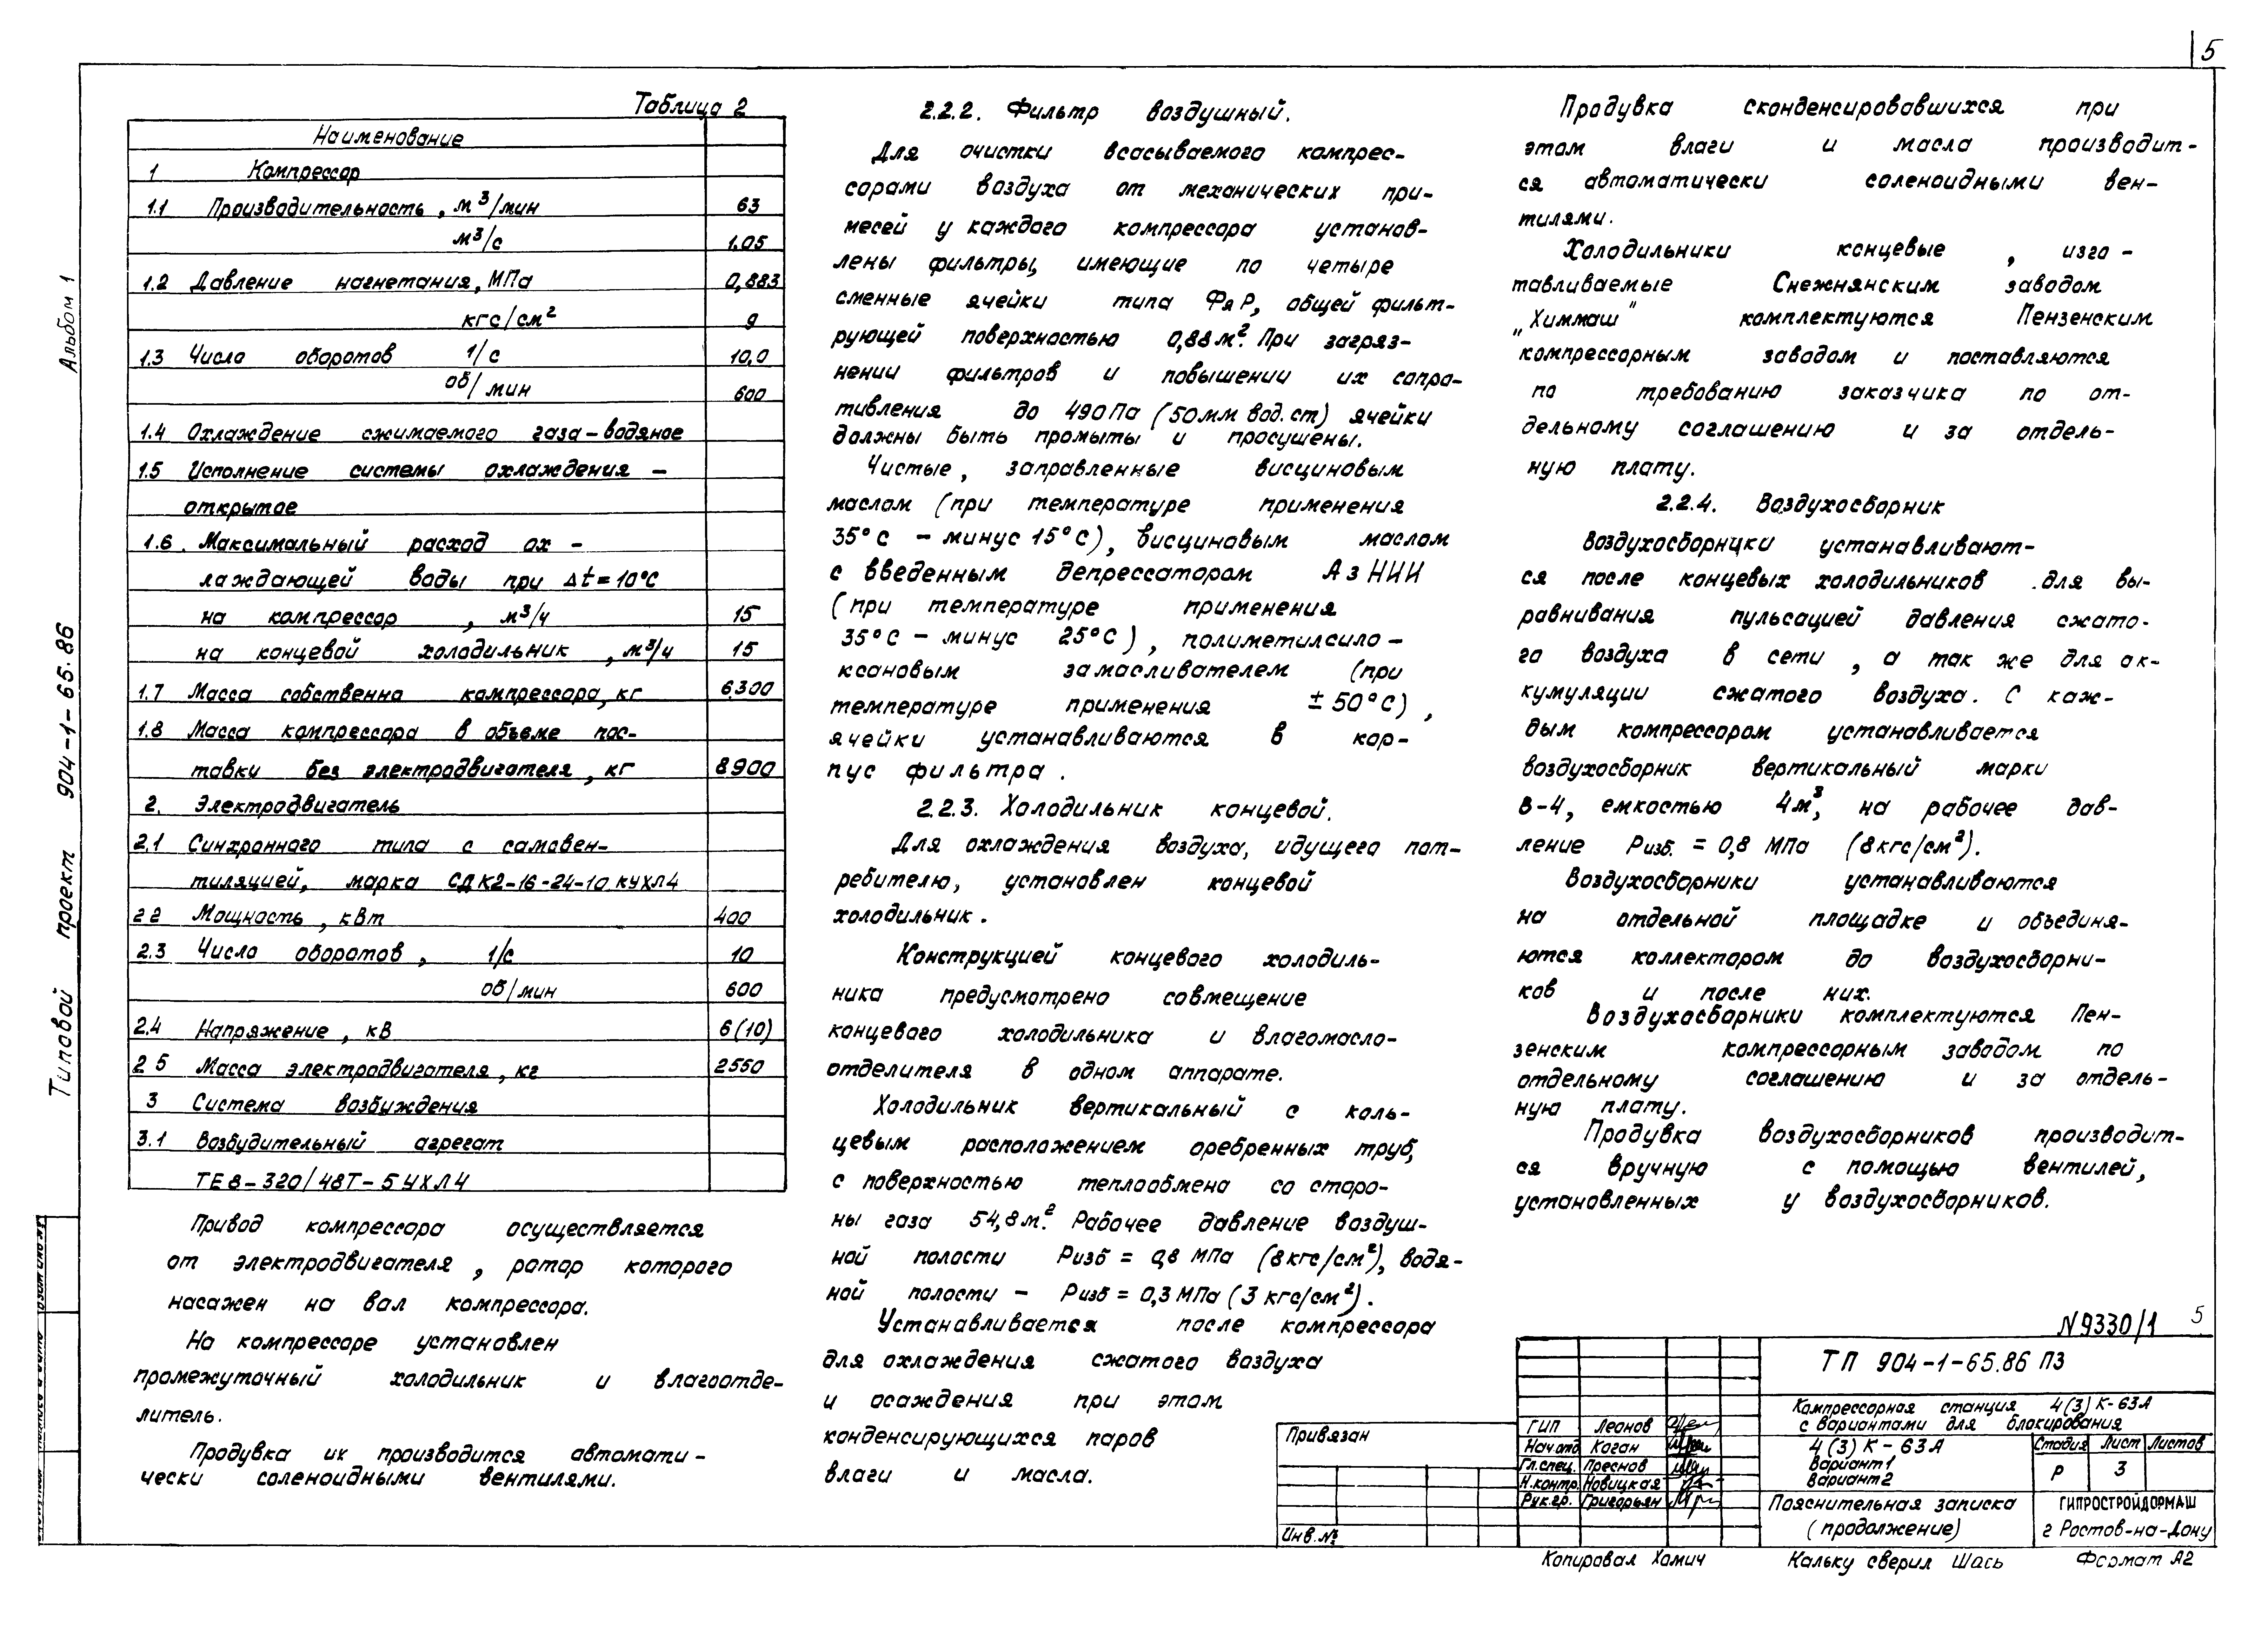 5
Таблица 2
Наименование
1 Компрессор
1.1 Производительность, м³/мин 63
м³/с 1.05
1.2 Давление нагнетания, МПа 0,883
кгс/см² 9
1.3 Число оборотов 1/с 10,0
об/мин 600
1.4 Охлаждение сжимаемого газа – водяное
1.5 Исполнение системы охлаждения –
открытое
1.6. Максимальный расход ох -
лаждающей воды при Δt = 10°С
на компрессор , м³/ч 15
на концевой холодильник , м³/ч 15
1.7 Масса собственно компрессора, кг 6300
1.8 Масса компрессора в объеме пос-
тавки без электродвигателя , кг 8900
2. Электродвигатель
2.1 Синхронного типа с самовен-
тиляцией, марка СДК2-16-24-10 КУХЛ4
2 2 Мощность , кВт 400
2.3 Число оборотов , 1/с 10
об/мин 600
2.4 Напряжение , кВ 6 (10)
2 5 Масса электродвигателя , кг 2550
3 Система возбуждения
3.1 Возбудительный агрегат
ТЕ 8 – 320 / 48Т – 5 УХЛ4
Привод компрессора осуществляется
от электродвигателя , ротор которого
насажен на вал компрессора.
На компрессоре установлен
промежуточный холодильник и влагоотде-
литель.
Продувка их производится автомати -
чески соленоидными вентилями.
2.2.2. Фильтр воздушный.
Для очистки всасываемого компрес-
сорами воздуха от механических при-
месей у каждого компрессора установ-
лены фильтры, имеющие по четыре
сменные ячейки типа ФяР, общей фильт-
рующей поверхностью 0,88 м². При загряз-
нении фильтров и повышении их сопро-
тивления до 490 Па (50мм вод. ст) ячейки
должны быть промыты и просушены.
Чистые, заправленные висциновым
маслом (при температуре применения
35°С – минус 15°С), висциновым маслом
с введенным депрессатором АзНИИ
(при температуре применения
35°С – минус 25°С) , полиметилсило -
ксановым замасливателем (при
температуре применения ± 50°С) ,
ячейки устанавливаются в кор-
пус фильтра .
2.2.3. Холодильник концевой.
Для охлаждения воздуха, идущего пот-
ребителю, установлен концевой
холодильник .
Конструкцией концевого холодиль-
ника предусмотрено совмещение
концевого холодильника и влагомасло-
отделителя в одном аппарате.
Холодильник вертикальный с коль-
цевым расположением оребренных труб,
с поверхностью теплообмена со сторо-
ны газа 54,8м². Рабочее давление воздуш-
ной полости Ризб = 0,8 МПа (8кгс/см²), водя-
ной полости – Ризб = 0,3 МПа (3 кгс/см²).
Устанавливается после компрессора
для охлаждения сжатого воздуха
и осаждения при этом
конденсирующихся паров
влаги и масла.
Продувка сконденсировавшихся при
этом влаги и масла производит-
ся автоматически соленоидными вен-
тилями.
Холодильники концевые , изго -
тавливаемые Снежнянским заводом
„Химмаш" комплектуются Пензенским
компрессорным заводом и поставляются
по требованию заказчика по от-
дельному соглашению и за отдель-
ную плату.
2.2.4. Воздухосборник
Воздухосборники устанавливают-
ся после концевых холодильников для вы-
равнивания пульсацией давления сжато-
го воздуха в сети , а так же для ак-
кумуляции сжатого воздуха. С каж-
дым компрессором устанавливается
воздухосборник вертикальный марки
В-4, емкостью 4м³, на рабочее дав-
ление Ризб. = 0,8 МПа (8кгс/см²).
Воздухосборники устанавливаются
на отдельной площадке и объединя-
ются коллектором до воздухосборни-
ков и после них.
Воздухосборники комплектуются Пен-
зенским компрессорным заводом по
отдельному соглашению и за отдель-
ную плату.
Продувка воздухосборников производит-
ся вручную с помощью вентилей,
установленных у воздухосборников.
N 9330/1 5
ТП 904-1-65.86 ПЗ
Компрессорная станция 4(3) К-63А
с вариантами для блокирования
ГИП Леонов
Нач отд Каган
Гл.спец. Преснов
Н.контр. Новицкая
Рук.гр. Григорьян
4(3) К-63А
Вариант 1
Вариант 2
Стадия Лист Листов
Р 3
Пояснительная записка
(продолжение)
ГИПРОСТРОЙДОРМАШ
г Ростов-на-Дону
Привязан
Инв.№
Копировал Хамич
Кальку сверил Шась
Формат А2
Альбом 1
Типовой проект 904-1-65.86